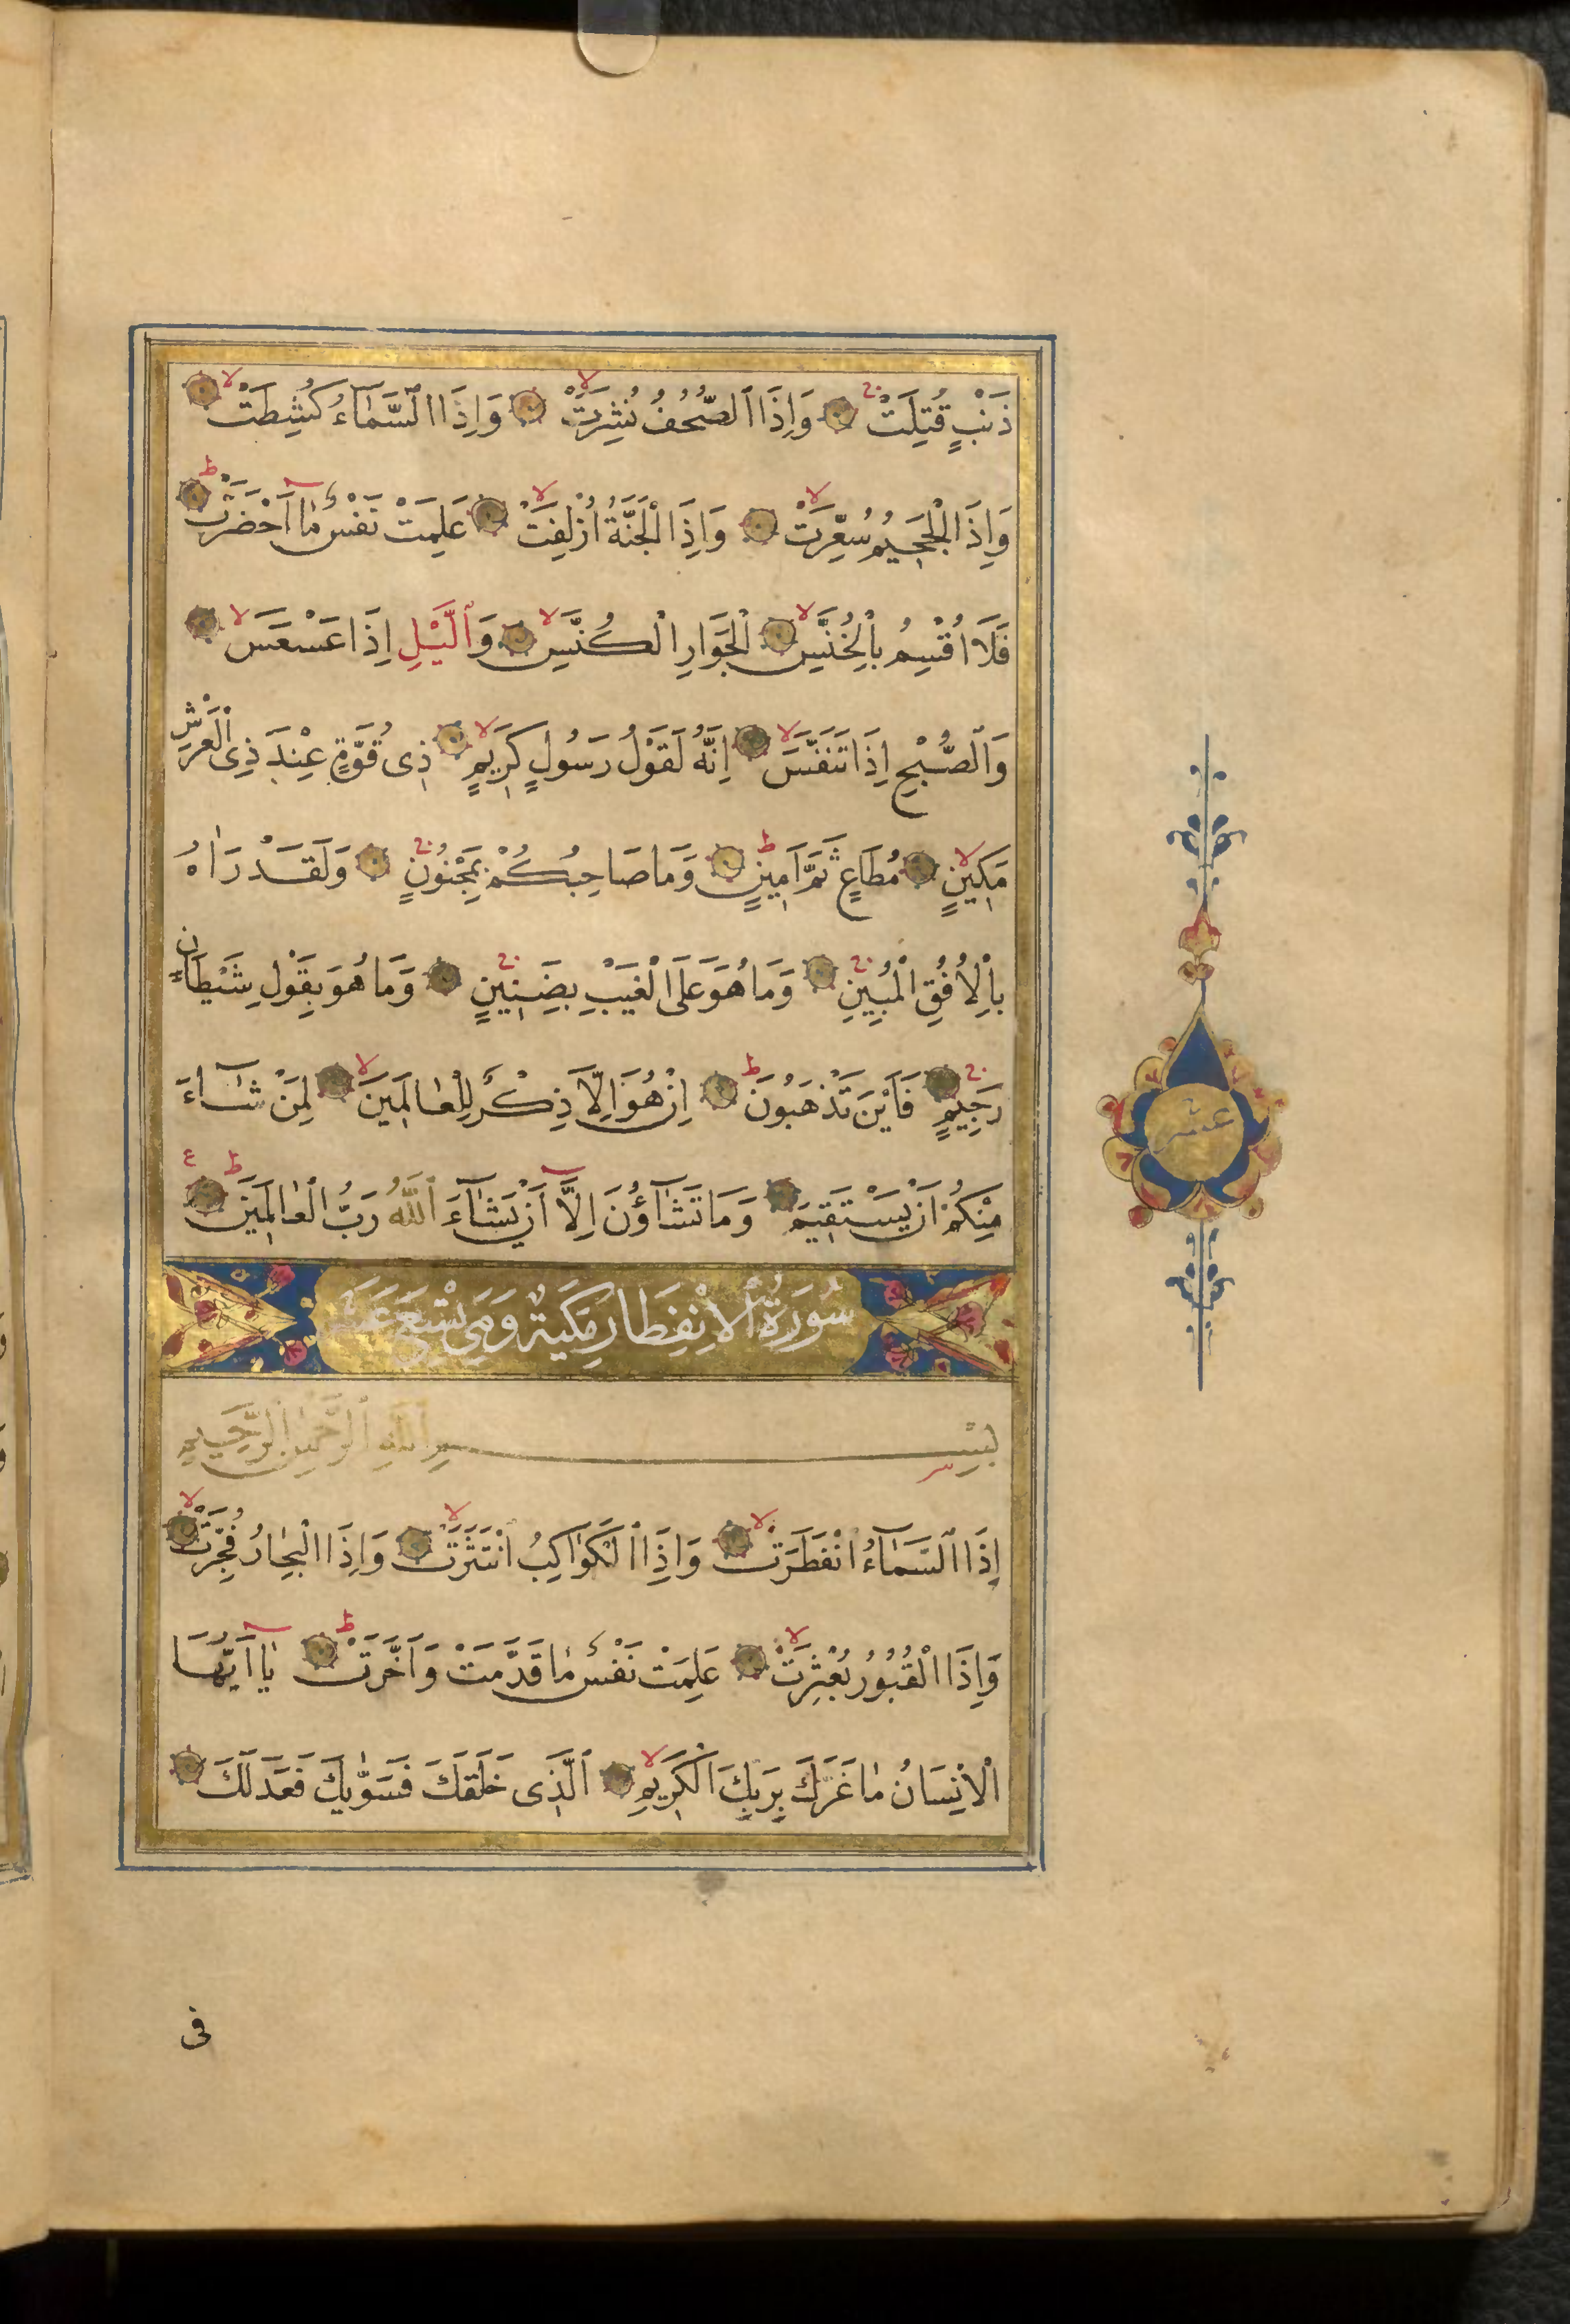 ذَنْبٍ قُتِلَتْ وَاِذَا الصُّحُفُ نُشِرَتْ وَاِذَا السَّمَآءُ كُشِطَتْ
وَاِذَا الْجَحِيمُ سُعِّرَتْ وَاِذَا الْجَنَّةُ اُزْلِفَتْ عَلِمَتْ نَفْسٌ مَٓا اَحْضَرَتْ
فَلَا اُقْسِمُ بِالْخُنَّسِ اَلْجَوَارِ الْكُنَّسِ وَالَّيْلِ اِذَا عَسْعَسَ
وَالصُّبْحِ اِذَا تَنَفَّسَ اِنَّهُ لَقَوْلُ رَسُولٍ كَرِيمٍ ذِى قُوَّةٍ عِنْدَ ذِى الْعَرْشِ
مَكِينٍ مُطَاعٍ ثَمَّ اَمِينٍ وَمَا صَاحِبُكُمْ بِمَجْنُونٍ وَلَقَدْ رَاٰهُ
بِالْاُفُقِ الْمُبِينِ وَمَا هُوَ عَلَى الْغَيْبِ بِضَنِينٍ وَمَا هُوَ بِقَوْلِ شَيْطَانٍ
رَجِيمٍ فَاَيْنَ تَذْهَبُونَ اِنْ هُوَ اِلَّا ذِكْرٌ لِلْعَالَمِينَ لِمَنْ شَآءَ
مِنْكُمْ اَنْ يَسْتَقِيمَ وَمَا تَشَآؤُنَ اِلَّٓا اَنْ يَشَآءَ اللّٰهُ رَبُّ الْعَالَمِينَ
سُورَةُ الْاِنْفِطَارِ مَكِّيَةٌ وَهِىَ تِسْعَ عَشَرَ
بِسْمِ اللّٰهِ الرَّحْمٰنِ الرَّحِيمِ
اِذَا السَّمَآءُ انْفَطَرَتْ وَاِذَا الْكَوَاكِبُ انْتَثَرَتْ وَاِذَا الْبِحَارُ فُجِّرَتْ
وَاِذَا الْقُبُورُ بُعْثِرَتْ عَلِمَتْ نَفْسٌ مَا قَدَّمَتْ وَاَخَّرَتْ يَٓا اَيُّهَا
الْاِنْسَانُ مَا غَرَّكَ بِرَبِّكَ الْكَرِيمِ اَلَّذِى خَلَقَكَ فَسَوّٰيكَ فَعَدَلَكَ
فى
عشر